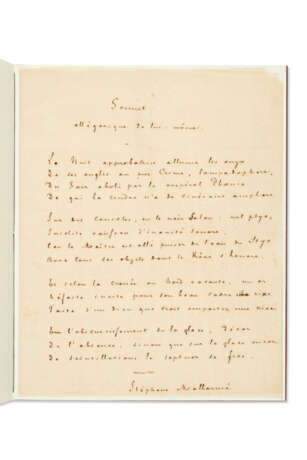 Sonnet
allégorique de lui-même.
La Nuit approbatrice allume les onyx
De ses ongles au pur Crime, lampadophore,
Du Soir aboli par le vespéral Phœnix
De qui la cendre n'a de cinéraire amphore
Sur des consoles, en le noir Salon: nul ptyx,
Insolite vaisseau d'inanité sonore,
Car le Maître est allé puiser de l'eau du Styx
Avec tous ses objets dont le Rêve s'honore.
Et selon la croisée au Nord vacante, un or
Néfaste incite pour son beau cadre une rixe
Faite d'un dieu que croit emporter une nixe
En l'obscurcissement de la glace, Décor
De l'absence, sinon que sur la glace encor
De scintillations le septuor se fixe.
Stéphane Mallarmé